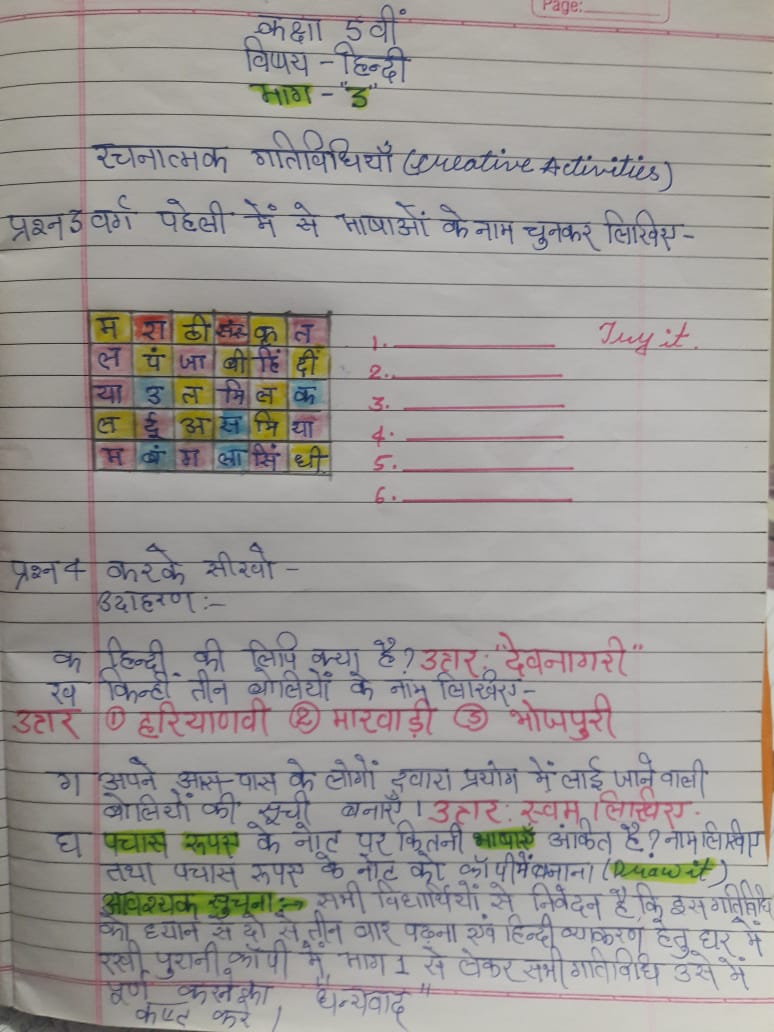 Page:
कक्षा 5वीं
विषय - हिन्दी
भाग - "3"
रचनात्मक गतिविधियाँ (Creative Activities)
प्रश्न 3 वर्ग पहेली में से भाषाओं के नाम चुनकर लिखिए-
म रा ठी संस् कृ त
ल पं जा बी हिं दीं
या उ त मि ल क
ल र्दू अ स मि या
म बं ग ला सिं धी
Try it.
1.
2.
3.
4.
5.
6.
प्रश्न 4 करके सीखो -
उदाहरण :-
क हिन्दी की लिपि क्या है? उत्तर: "देवनागरी"
ख किन्हीं तीन बोलियों के नाम लिखिए-
उत्तर ① हरियाणवी ② मारवाड़ी ③ भोजपुरी
ग अपने आस-पास के लोगों द्वारा प्रयोग में लाई जाने वाली
बोलियों की सूची बनाएँ। उत्तर: स्वम लिखिए.
घ पचास रूपए के नोट पर कितनी भाषाएँ अंकित है? नाम लिखिए
तथा पचास रूपए के नोट को कॉपी में बनाना। (Draw it)
आवश्यक सूचना :- सभी विद्यार्थियों से निवेदन है कि इस गतिविधि
को ध्यान से दो से तीन बार पढ़ना एवं हिन्दी व्याकरण हेतु घर में
रखी पुरानी कॉपी में, भाग 1 से लेकर सभी गतिविधि उसे में
पूर्ण करने का धन्यवाद"
कष्ट करे।